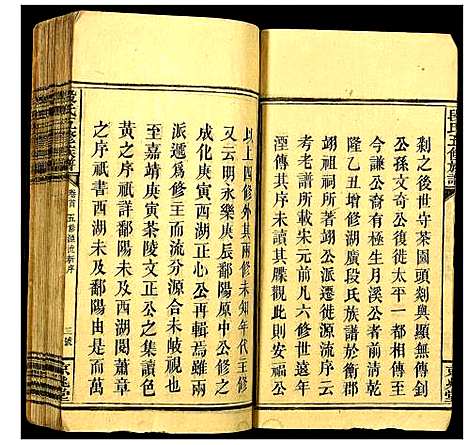 段氏五修族譜
剎之後世守茶園頭剡與顯無傳釗
公孫文奇公復徙太平一都公其後
今謙公裔有極生月溪公者初於
隆乙丑增修湖廣段氏族譜於衡郡
翊祖祠所著翊公派遷徙源流序云
考老譜所載宋元前凡六修世遠年
湮傳其序未讀其牒觀此則安福公
以上四修外其兩修未知年代王修
又云明永樂庚辰鄱陽原中公修之
成化庚寅西湖正心公再輯焉雖兩
派遞爲修王而流分源合未歧視也
至嘉靖庚寅茶陵文正公之集讀色
黃之序祇詳鄱陽未及西湖閱蕭章
之序祇西湖未及鄱陽由是而萬
卷首
五修源流新序
三號
京兆堂